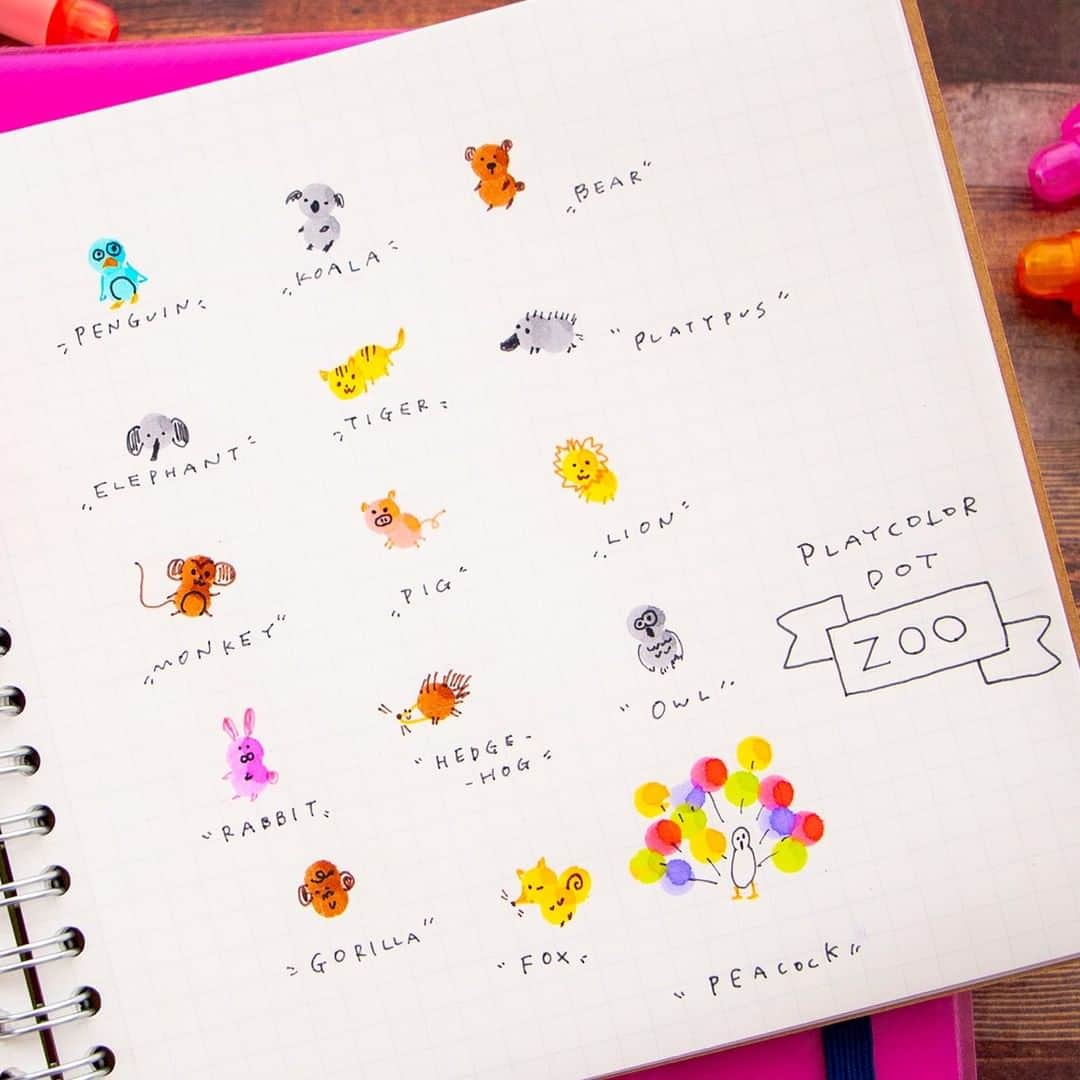 "BEAR"
"KOALA"
"PENGUIN"
"PLATYPUS"
"TIGER"
"ELEPHANT"
"LION"
"PIG"
"MONKEY"
PLAYCOLOR
DOT
ZOO
"OWL"
"HEDGE-
-HOG"
"RABBIT"
"GORILLA"
"FOX"
"PEACOCK"